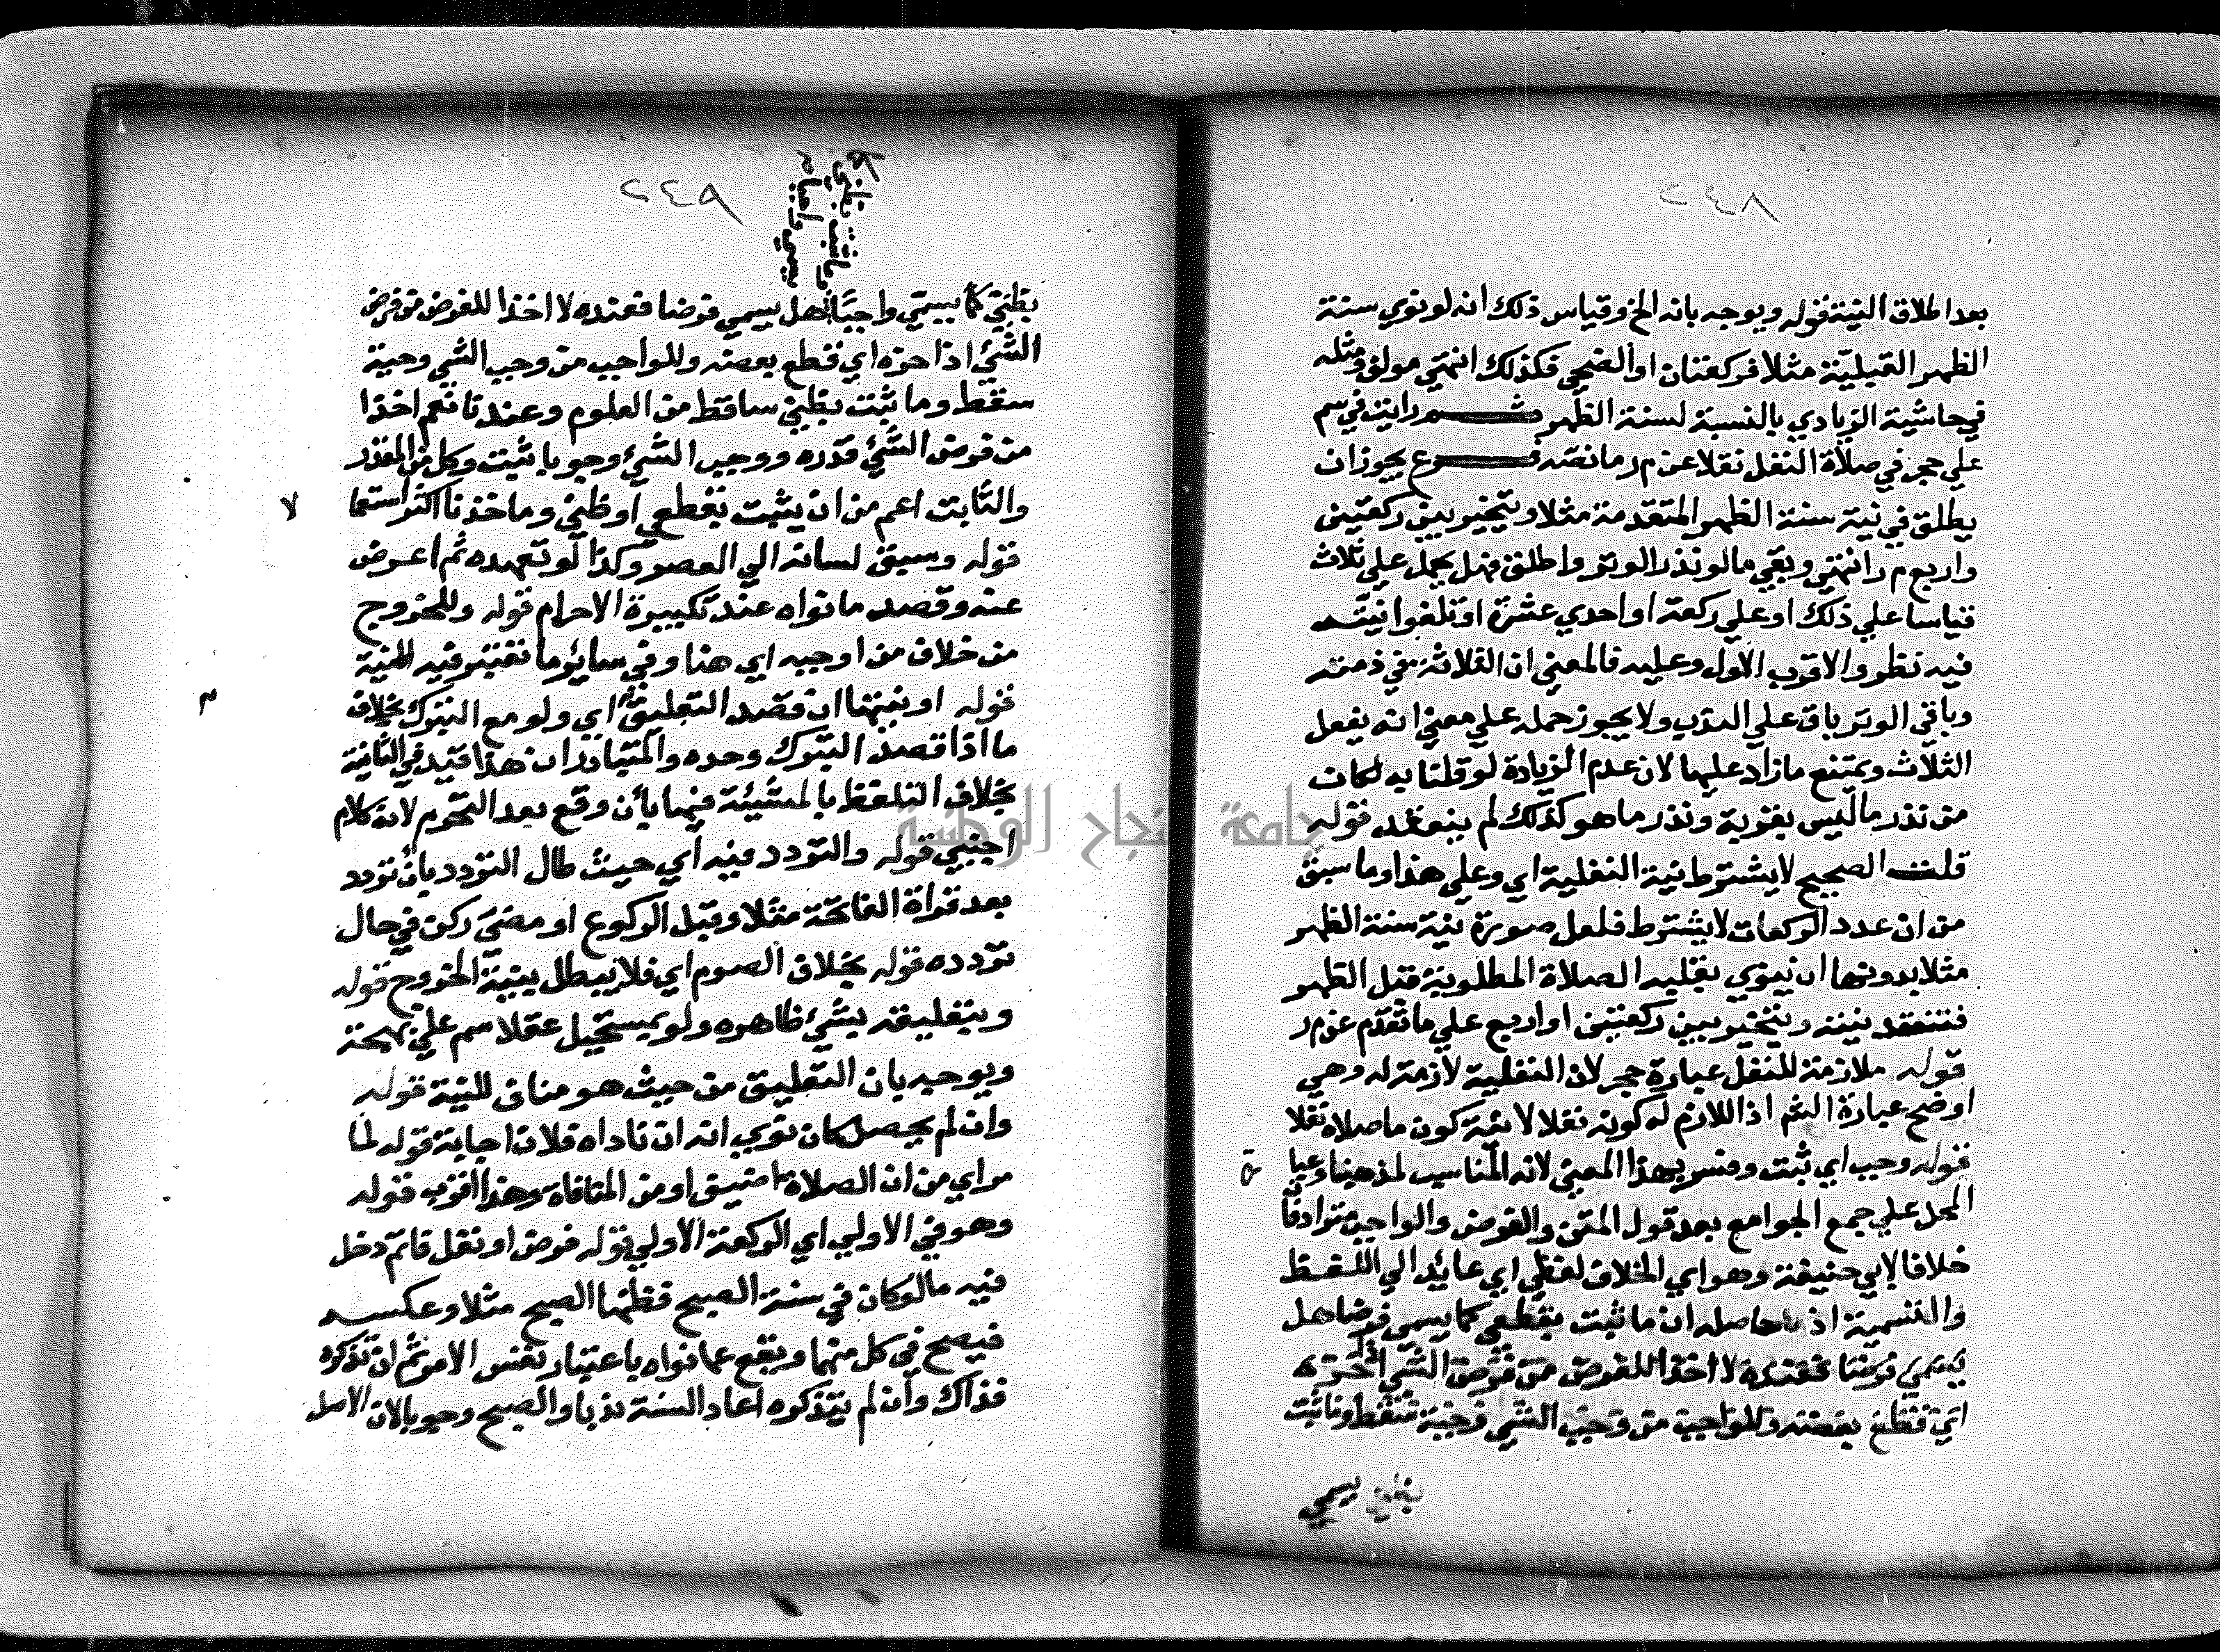 ٢٤٨
بعد اطلاق النية قوله ويوجه بانه الخ وقياس ذلك انه لو نوي سنة
الظهر القبلية مثلا فركعتان او الضحي فكذلك انتهي مولف ومثله
في حاشية الزيادي بالنسبة لسنة الظهر ثم رايت في سم
علي حجر في صلاة النفل نقلا عن م ر ما نصه فرع يجوز ان
يطلق في نية سنة الظهر المتقدمة مثلا ويتخير بين ركعتين
واربع م ر انتهي وبقي ما لو نذر الوتر واطلق فهل يحمل علي ثلاث
قياسا علي ذلك او علي ركعة او احدي عشرة او تلغوا نيته
فيه نظر والاقرب الاول وعليه فالمعني ان الثلاثة في ذمته
وباقي الوتر باق علي الندب ولا يجوز حمله علي معني انه يفعل
الثلاث ويمتنع ما زاد عليها لان عدم الزيادة لو قلنا به لكان
من نذر ما ليس بقربة ونذر ما هو كذلك لم ينعقد قوله
قلت الصحيح لا يشترط نية النفلية اي وعلي هذا وما سبق
من ان عدد الركعات لا يشترط فلعل صورة نية سنة الظهر
مثلا بدونها ان ينوي بقلبه الصلاة المطلوبة قبل الظهر
فتنعقد نيته ويتخير بين ركعتين او اربع علي ما تقدم عن م ر
قوله ملازمة للنفل عبارة حجر لان النفلية لازمة له وهي
اوضح عبارة الشم اذ اللازم له كونه نفلا لا نية كون ما صلاه نفلا
قوله وجب اي ثبت وفسر بهذا المعني لانه المناسب لمذهبنا وعبا
المحل علي جمع الجوامع بعد قول المتن والفرض والواجب مترادفا
خلافا لابي حنيفة وهو اي الخلاف لفظي اي عايد الي اللفظ
والتسمية اذ حاصله ان ما ثبت بقطعي كما يسمي فرضا هل
يسمي فرضا فعنده لا اخذا للفرض من فرض الشي حزه
اي قطع بعضه وللواجب من وجب الشي وجبة سقط وما ثبت
بظني يسمي
٢٤٩
بظني كما يسمي واجبا هل يسمي فرضا فعنده لا اخذا للفرض من فرض
الشئ اذا حزه اي قطع بعضه وللواجب من وجب الشي وجبة
سقط وما ثبت بظني ساقط من العلوم وعندنا نعم اخذا
من فرض الشئ قدره ووجب الشئ وجوبا ثبت وكل من المقدر
والثابت اعم من ان يثبت بقطعي او ظني وماخذنا اكثر استعما
قوله وسبق لسانه الي العصر وكذا لو تعمده ثم اعرض
عنه وقصد ما نواه عند تكبيرة الاحرام قوله وللخروج
من خلاف من اوجبه اي هنا وفي ساير ما تعتبر فيه النية
قوله او بنيتها ان قصد التعليق اي ولو مع التبرك بخلاف
ما اذا قصد التبرك وحده والمتبادر ان هذا قيد في الثانية
بخلاف التلفظ بالمشيئة فيها بأن وقع بعد التحرم لانه كلام
اجنبي قوله والتردد فيه اي حيث طال التردد بأن تردد
بعد قراة الفاتحة مثلا وقبل الركوع او مضي ركن في حال
تردده قوله بخلاف الصوم اي فلا يبطل بنية الخروج قوله
وبتعليقه بشئ ظاهره ولو بمستحيل عقلا سم علي بهجة
ويوجه بان التعليق من حيث هو مناف للنية قوله
وان لم يحصل كان نوي انه ان ناداه فلان اجابة قوله لما
مر اي من ان الصلاة اضيق او من المنافاة وهذا اقرب قوله
وهو في الاولي اي الركعة الاولي قوله فرض او نفل قائم دخل
فيه ما لو كان في سنة الصبح فظنها الصبح مثلا وعكسه
فيصح في كل منهما ويقع عما نواه باعتبار نفس الامر ثم ان تذكره
فذاك وان لم يتذكره اعاد السنة نذبا والصبح وجوبا لان الاصل